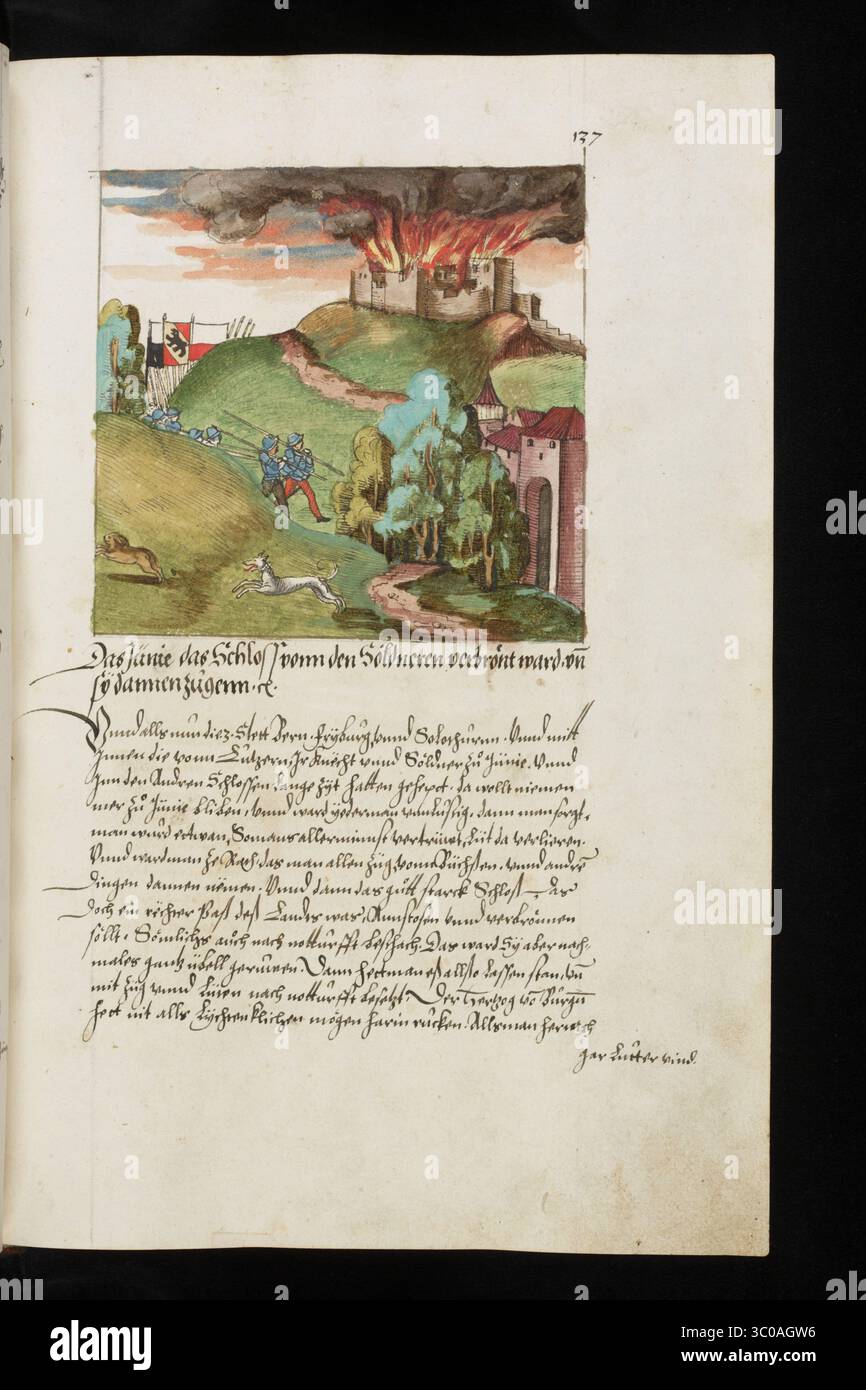 137
Das Jünie das Schloss vonn den Söldneren verbrönt ward. vn̄
sÿ dannen zugenn. ꝛc.
Vnnd alls nun die 3. Stett Bern. Fryburg vnnd Solothurnn. Vnnd mitt
Jnnen die vonn Lutzern, Jr knecht vnnd Söldner zu Jünie. Vnnd
Jnn den Andren Schlossen lange zyt hatten gehept. da wollt niemen
mer zu Jünie bliben, vnnd ward yederman vnlustig, dann man sorgt,
man wurd ettwan, So mans aller minst vertrüwt, Lüt da verlieren.
Vnnd ward man ze Rath, das man allen züg, vonn Büchsen, vnnd andrē
dingen dannen nemen. Vnnd dann das gutt starck Schloß Das
doch ein rechter Paß deß Landes was, Annstossen vnnd verbrönnen
söllt. Sömlichs auch nach notturfft beschach. Das ward Sy aber nach=
males gantz übell geruwen. Dann hett man eß allso lassen stan, vn̄
mit züg vnnd Lüten nach notturfft besetzt, Der Hertzog vō Burgun̄
hett nit alls Lychtenklichen mögen harin rucken. Alls man hernach
gar Lutter vind.
alamy
Image ID: 3C0AGW6
www.alamy.com